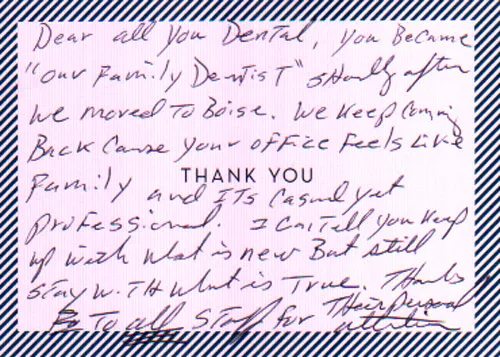 Dear all you Dental, you Became
"our Family Dentist" shortly after
we moved to Boise. We Keep Coming
Back Cause your office Feels Like
THANK YOU
Family and ITs Casual yet
professional. I Can Tell you Keep
up with what is new But still
stay with what is True. Thanks
To all Staff for Their personal
attention